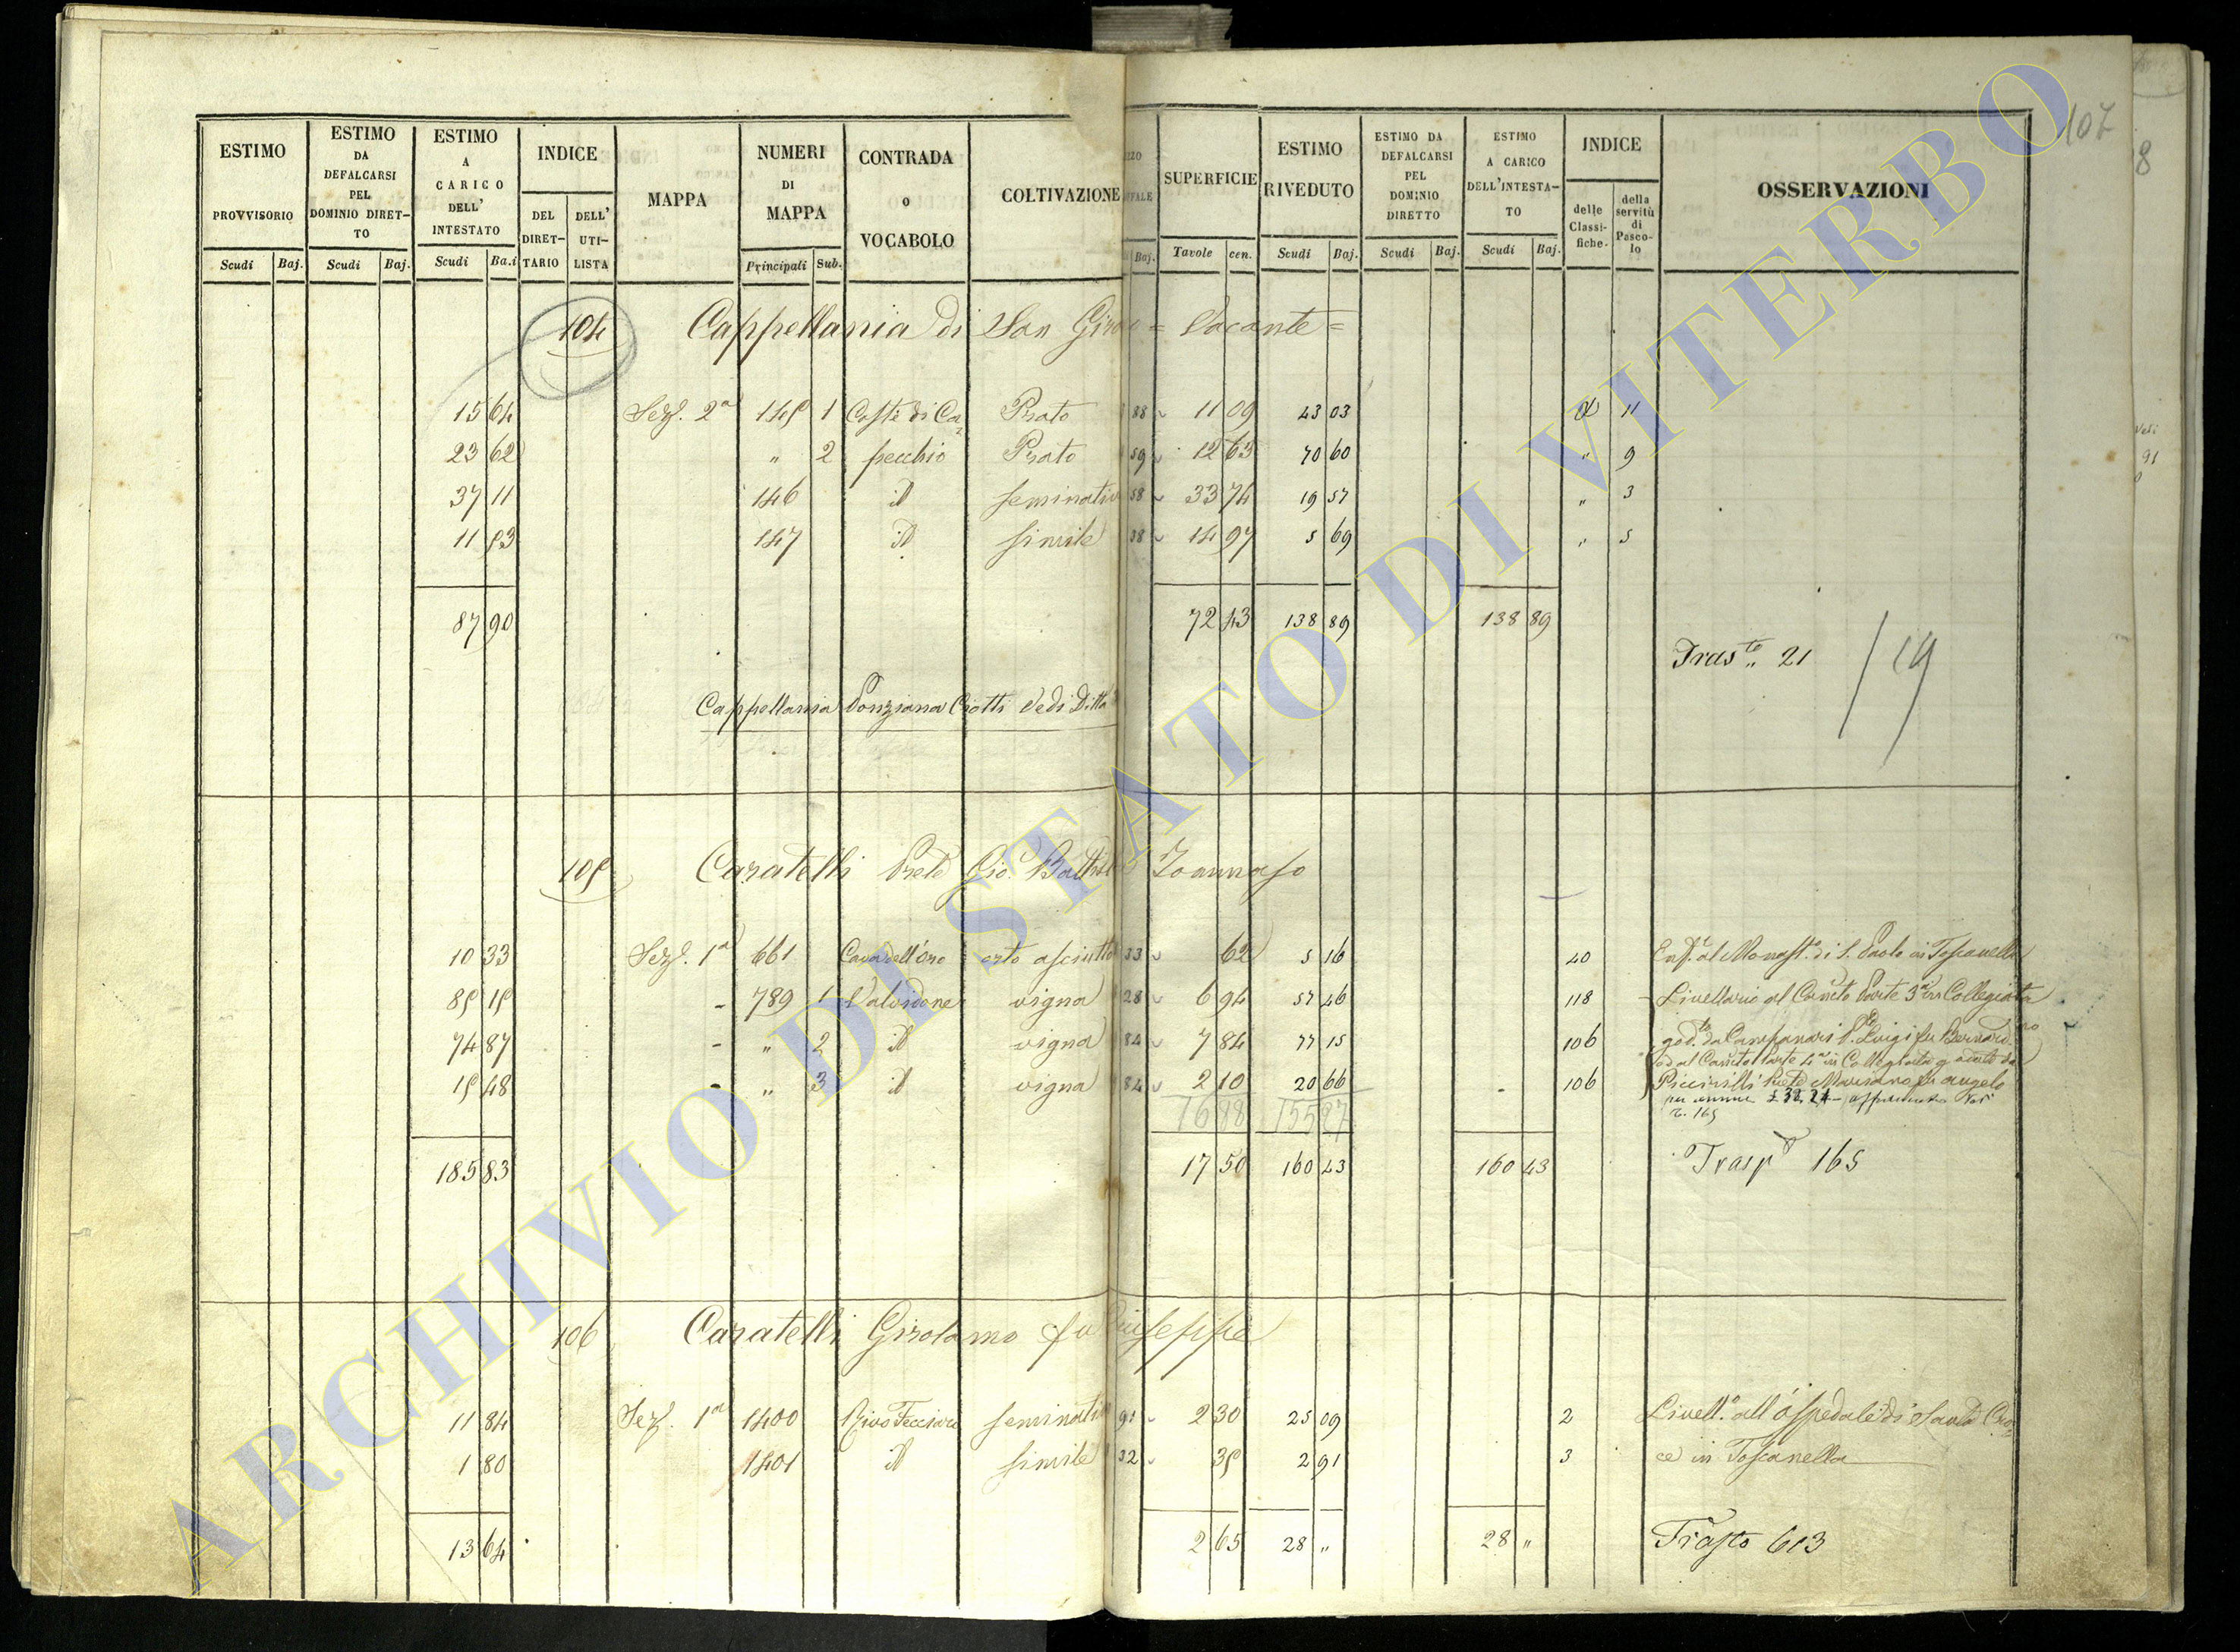 107
8
ESTIMO PROVVISORIO | ESTIMO DA DEFALCARSI PEL DOMINIO DIRETTO | ESTIMO A CARICO DELL' INTESTATO | INDICE | MAPPA | NUMERI DI MAPPA | CONTRADA O VOCABOLO | COLTIVAZIONE | SUPERFICIE | ESTIMO RIVEDUTO | ESTIMO DA DEFALCARSI PEL DOMINIO DIRETTO | ESTIMO A CARICO DELL'INTESTATO | INDICE | OSSERVAZIONI
DEL DIRETTARIO | DELL' UTILISTA | delle Classifiche. | della servitù di Pascolo
Scudi | Baj. | Scudi | Baj. | Scudi | Ba.i | Principali | Sub. | Baj. | Tavole | cen. | Scudi | Baj. | Scudi | Baj. | Scudi | Baj.
104 Cappellania di San Giro = Vacante =
15 64 Sez. 2a 145 1 Coste di Ca= Prato 88 11 09 43 03 11
23 62 " 2 pecchio Prato 59 12 63 70 60 " 9
37 11 146 id seminativo 58 33 74 19 57 " 3
11 53 147 id simile 38 14 97 5 69 " 5
87 90 72 43 138 89 138 89
Tras.to 21 19
Cappellania Ponziana Ciotti Vedi Ditta
105 Caratelli Prete Gio. Battista Tommaso
10 33 Sez. 1a 661 Cava dell'Oro orto asciutto 33 62 5 16 40 Enf. al Monast. di S. Paolo in Toscanella
85 15 - 789 1 Valvidone vigna 28 6 94 57 46 118 Livellario al Canto Parte 3a in Collegiata
74 87 - " 2 id vigna 84 7 84 77 15 106 god.to da Campanari Luigi fu Bernardino
ed al Parte 4a in Collegiata goduto da
15 48 - " 3 id vigna 84 2 10 20 66 - 106 Piccirilli Prete Mariano fu Angelo
per annue
16 88 155 27
165
185 83 17 50 160 43 160 43 Trasp 165
106 Caratelli Girolamo fu Giuseppe
11 84 Sez. 1a 1400 Rivo Fecciaro seminativo 91 2 30 25 09 2 Livell.o all'Ospedale di Santa Cro=
1 80 1401 id simile 32 35 2 91 3 ce in Toscanella
13 64 2 65 28 " 28 " Trasto 613
ARCHIVIO DI STATO DI VITERBO